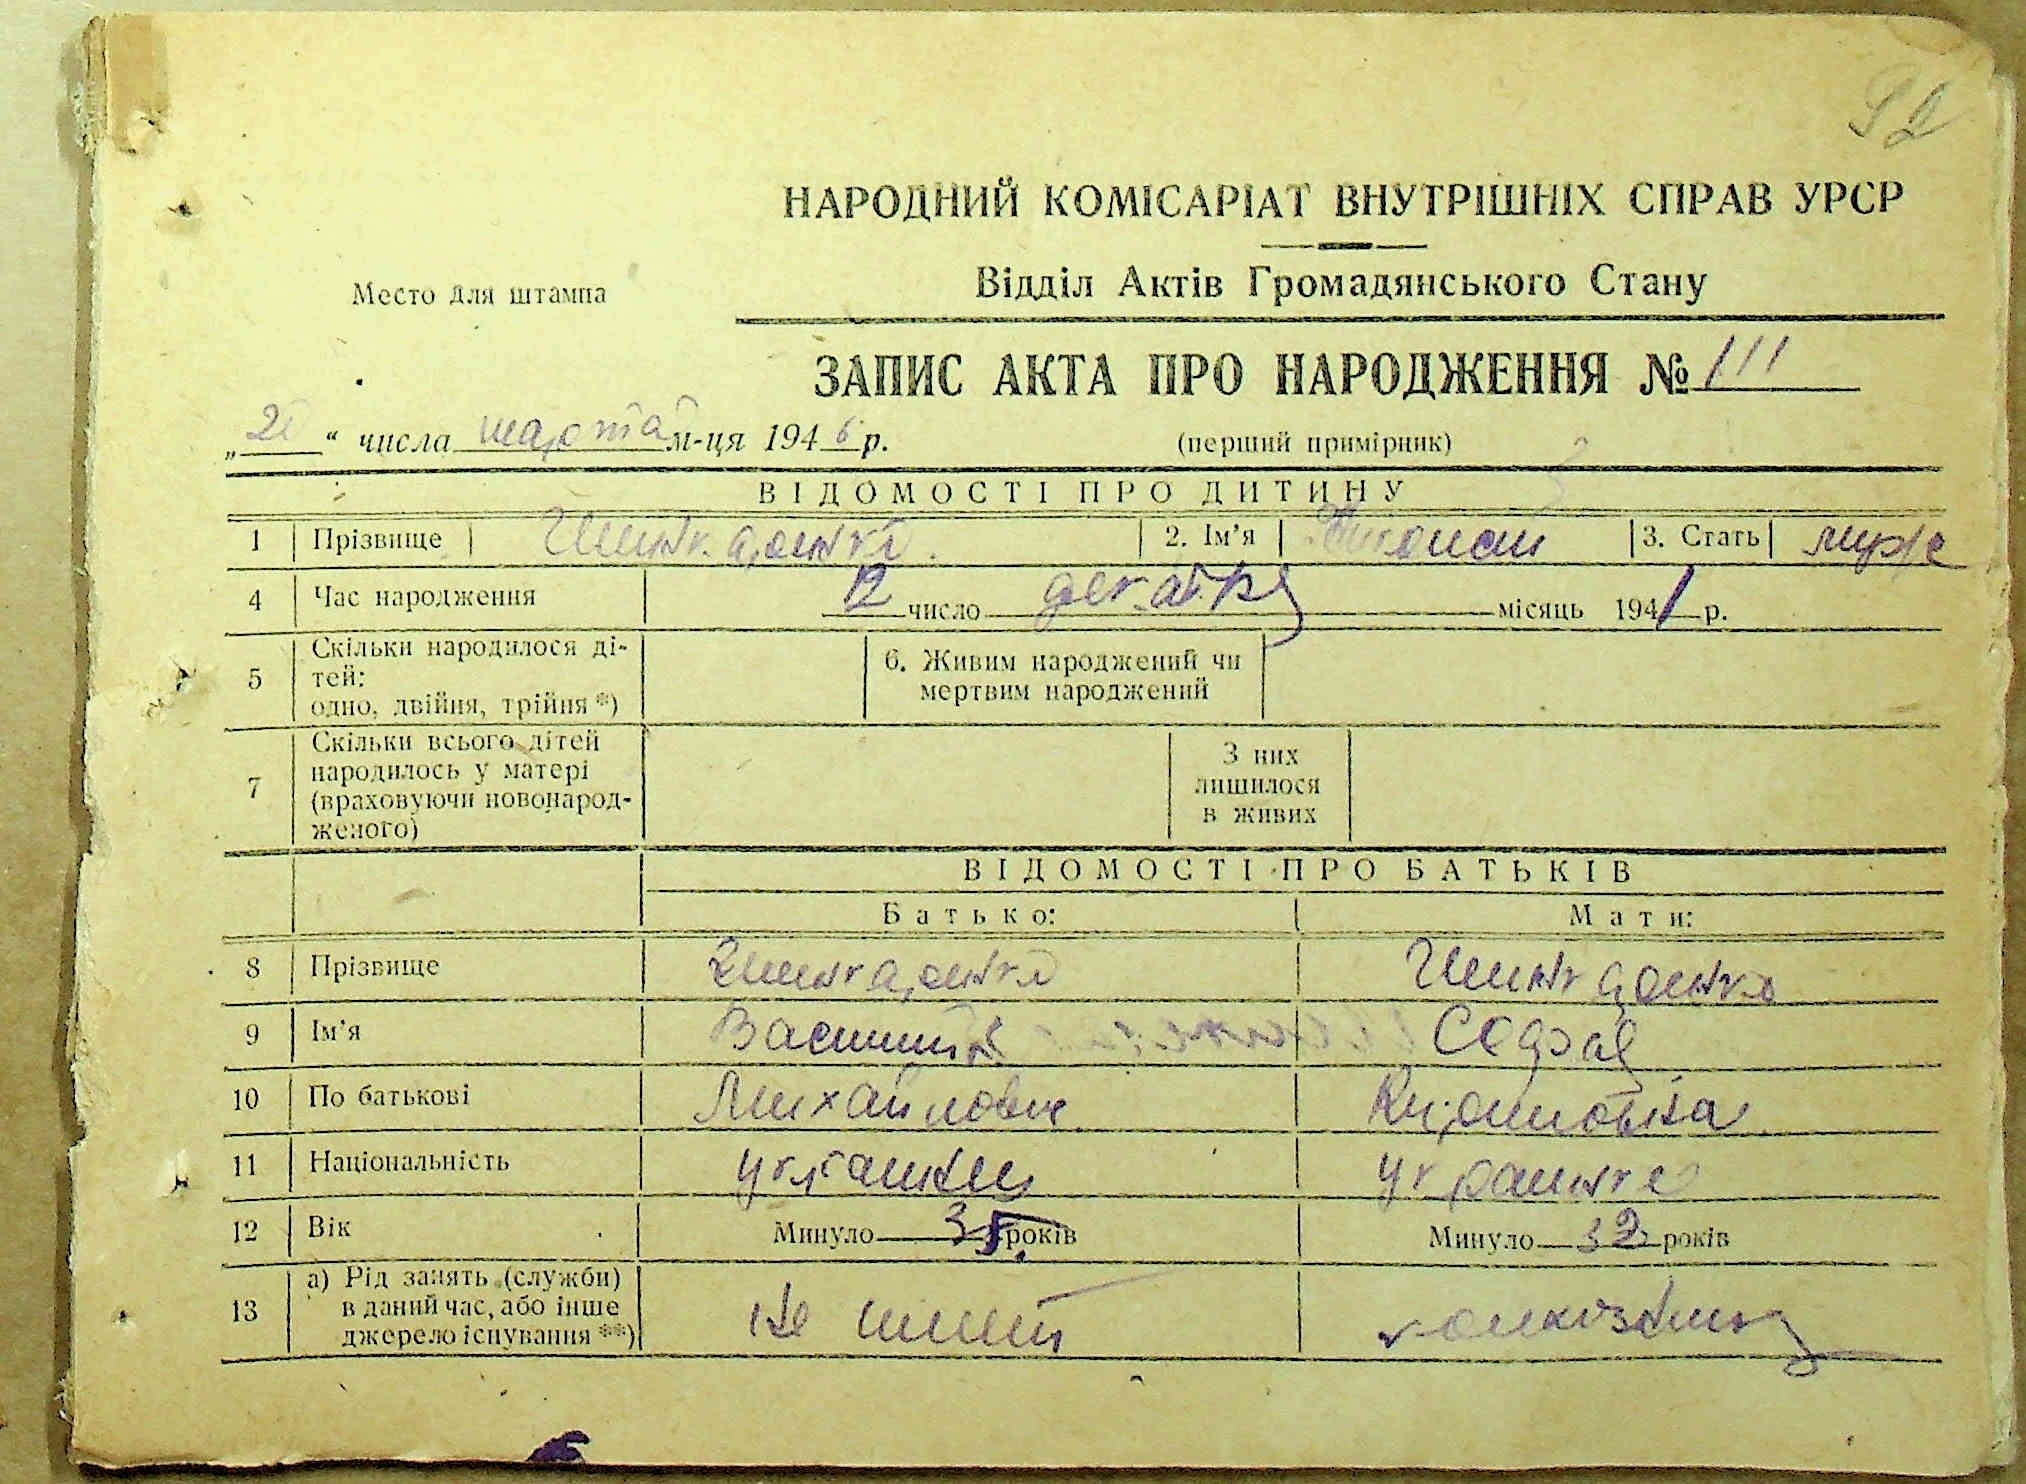 92
НАРОДНИЙ КОМІСАРІАТ ВНУТРІШНІХ СПРАВ УРСР
Место для штампа
Відділ Актів Громадянського Стану
ЗАПИС АКТА ПРО НАРОДЖЕННЯ № 111
„ “ числа марта м-ця 1946 р.
(перший примірник)
ВІДОМОСТІ ПРО ДИТИНУ
1 Прізвище 2. Ім’я Николай 3. Стать муж
4 Час народження 12 число декабря місяць 1941 р.
5 Скільки народилося ді-
тей:
одно, двійня, трійня *)
6. Живим народжений чи
мертвим народжений
7 Скільки всього дітей
народилось у матері
(враховуючи новонарод-
женого)
З них
лишилося
в живих
ВІДОМОСТІ ПРО БАТЬКІВ
Батько: Мати:
8 Прізвище
9 Ім’я Василий София
10 По батькові Михайлович Кирилловна
11 Національність украинец украинка
12 Вік Минуло 35 років Минуло 32 років
13 а) Рід занять (служби)
в даний час, або інше
джерело існування **)
не имеет колхозница